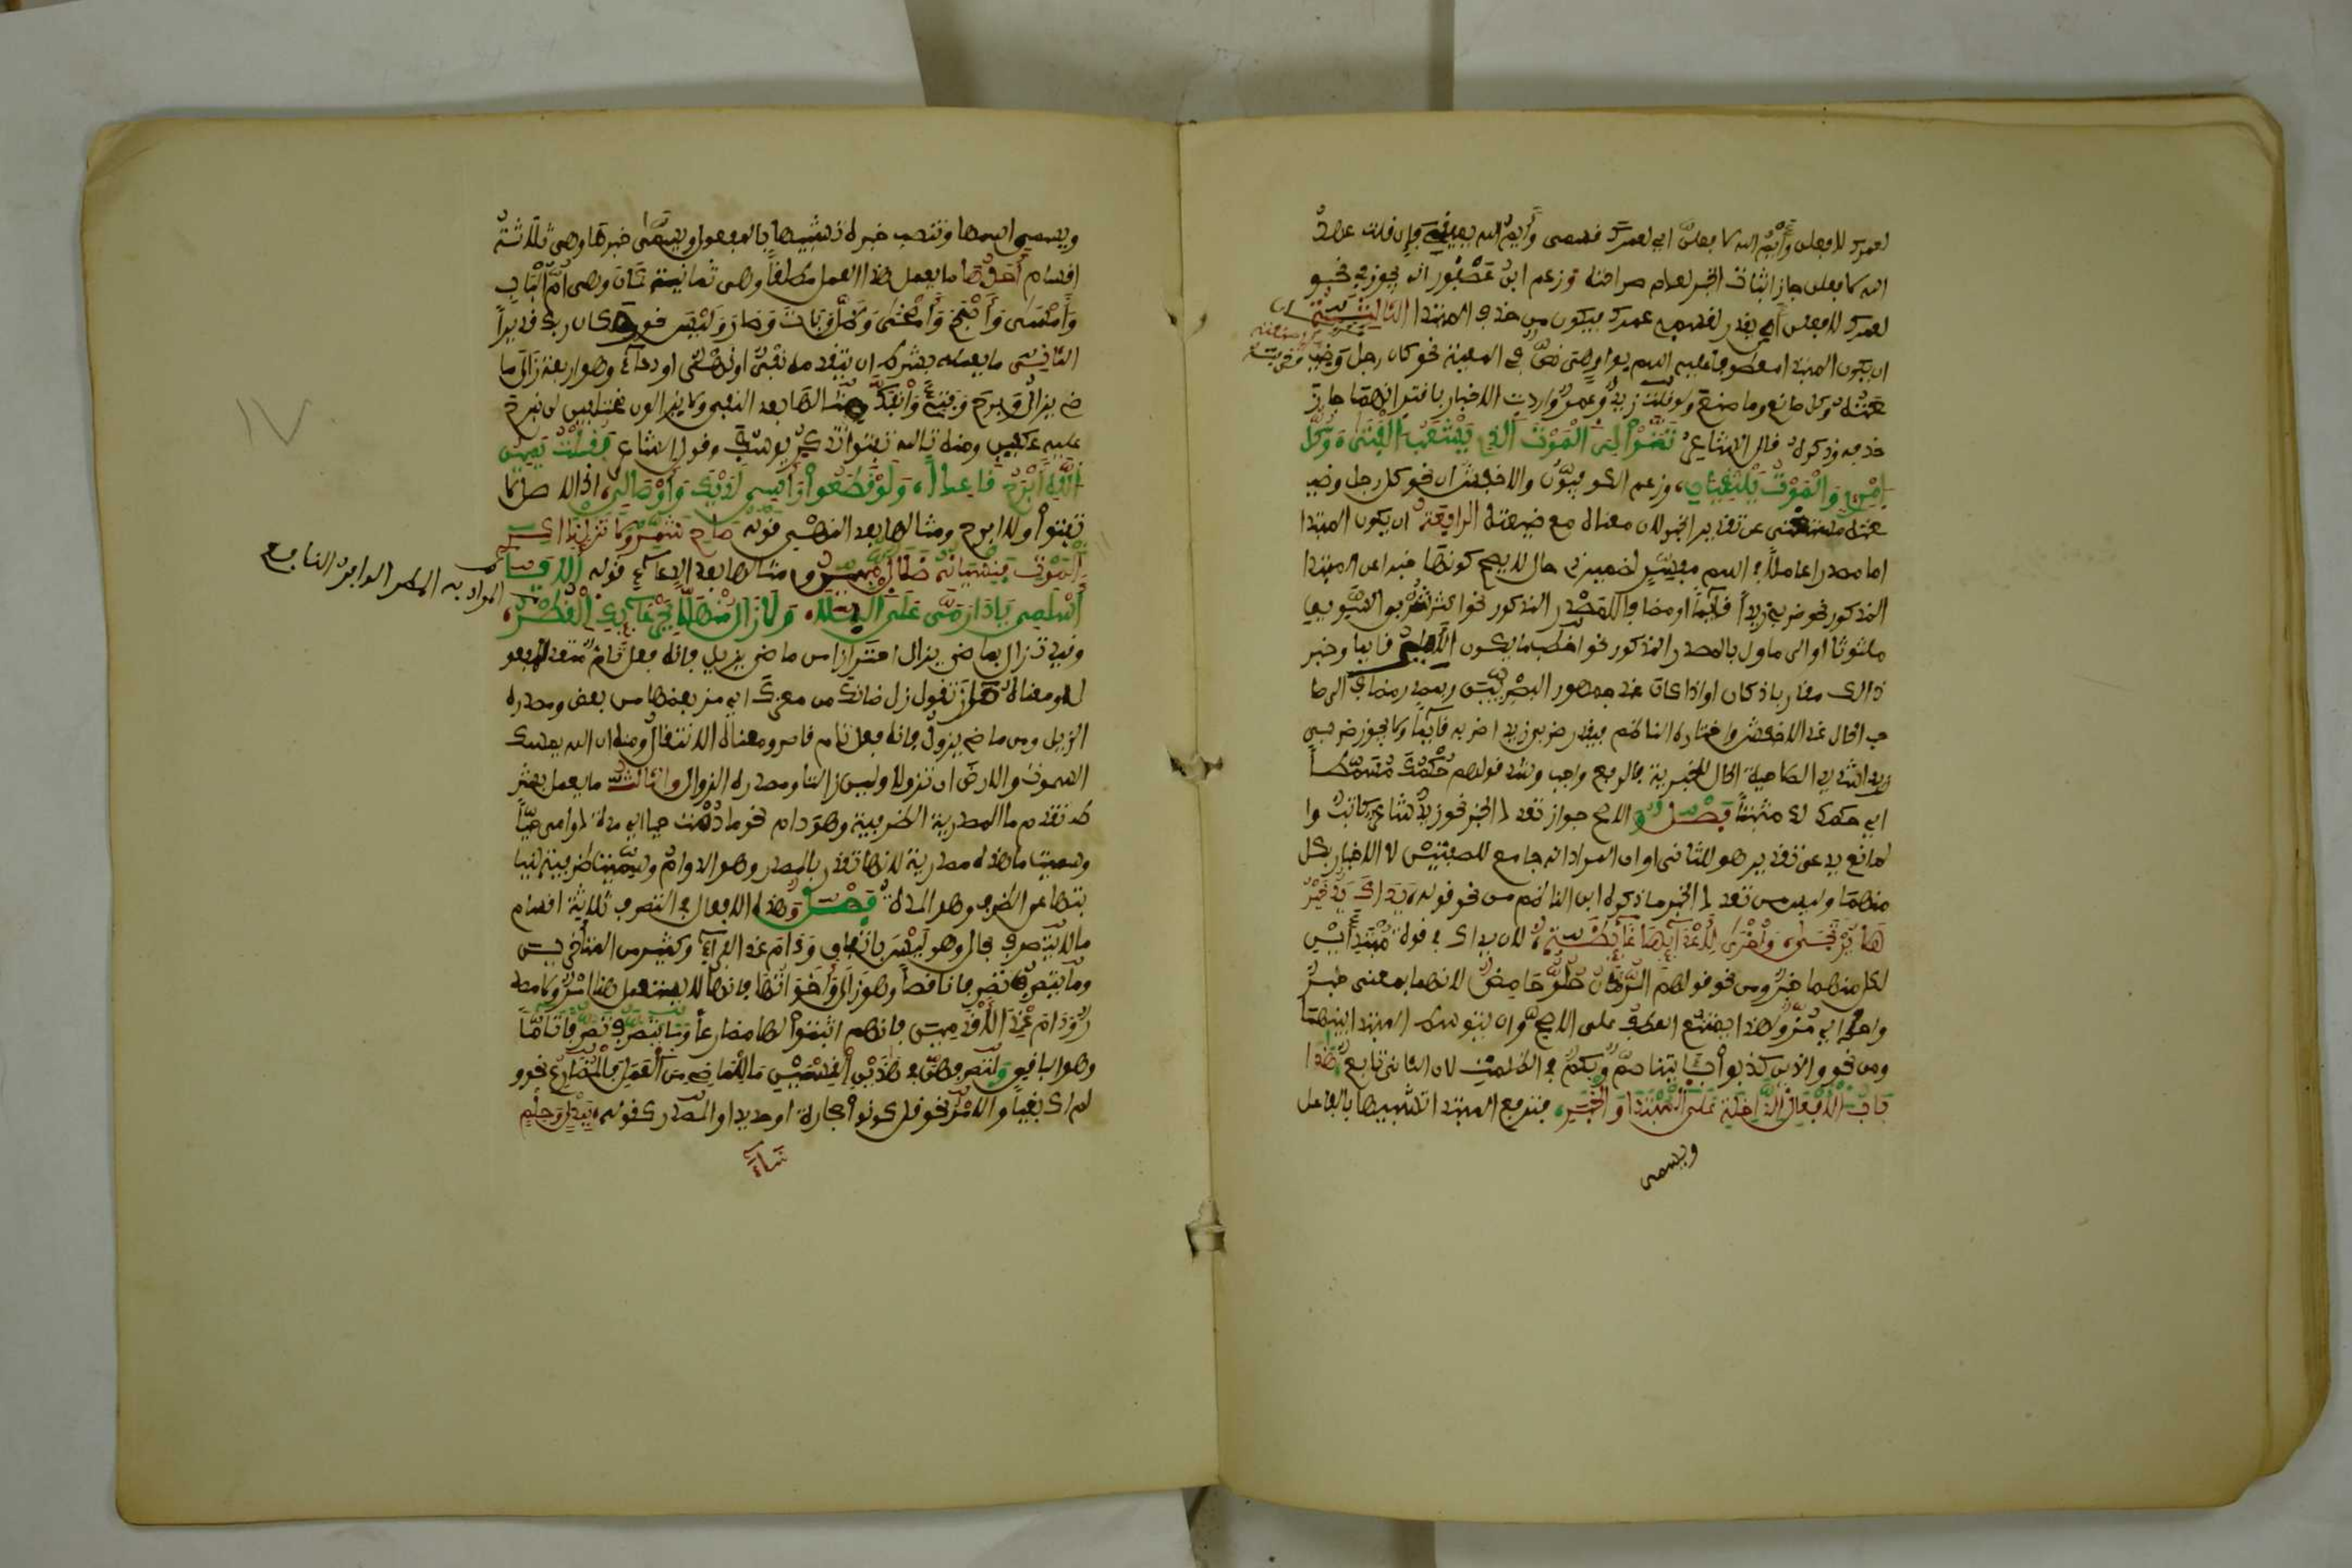 لعمرك لافعلن وأيمُن الله لافعلن اي لعمرك فسمى وأيمن الله يمينى فإن قلت عهد
الله لافعلن جاز اثبات الخبر لعدم صراحته وزعم ابنُ عصفور انه يجوز في نحو
لعمرك لافعلن أن يقدر لقسمى عمرك فيكون من حذف المبتدا الثالثة
ان يكون المبتدا معطوفا عليه اسم بواو هي نصٌّ في المعية نحو كل رجل وضيعته
صنعته وكل صانع وما صنع ولو قلت زيدٌ وعمرٌو واردت الاخبار باقترانهما جاز
حذفه وذكره قال الشاعر تَمَنَّوْا لِيَ الْمَوْتَ الَّذِي يَشْعَبُ الْفَتَى وَكُلُّ
امْرِئٍ وَالْمَوْتُ يَلْتَقِيَانِ وزعم الكوفيون والاخفش ان نحو كل رجل وضيـ
عته مستغنى عن تقدير الخبر لان معناه مع ضيعته الرابعة ان يكون المبتدا
اما مصدرا عاملا في اسم مفسِّر لضمير ذى حال لا يصح كونها خبرا عن المبتدا
المذكور نحو ضربي زيداً قائماً او مضافا للمصدر المذكور نحو اكثر شربي السويق
ملتوتا او الى ماول بالمصدر المذكور نحو اخطب ما يكون الامير قايما وخبر
ذالك مقدر باذ كان او اذا كان عند جمهور البصريين وبمصدر مضاف الى صا
حب الحال عند الاخفش واختاره الناظم فيقدر ضربي زيدا ضربه قائماً ولا يجوز ضربي
زيدا شديدا لصلاحية الحال للخبرية فالرفع واجب وشذ قولهم حكمك مسمطاً
اي حكمك لك مثبتاً فصل والاصح جواز تعدد الخبر نحو زيد شاعر كاتب وا
لمانع يدعى تقدير هو للثاني او ان المراد انه جامع للصفتين لا الاخبار بكل
منهما وليس من تعدد الخبر ما ذكره ابن الناظم من نحو قوله يداك يدٌ خير
ها يرتجى واخرى لاعدائها غائظة لان يداك في قوة مبتدأين
لكل منهما خبر ومن نحو قولهم الرمان حلو حامض لانهما بمعنى خبر
واحد اي مز ولهذا يمتنع العطف على الاصح وان يتوسط المبتدا بينهما
ومن نحو والذين كذبوا بآياتنا صمٌّ وبكمٌ في الظلمت لان الثاني تابع هذا
باب الأفعال الداخلة على المبتدا والخبر فترفع المبتدا تشبيها بالفاعل
ويسمى
ويسمى اسمها وتنصب خبره تشبيها بالمفعول ويسمى خبرها وهي ثلاثة
اقسام أحدها ما يعمل هذا العمل مطلقاً وهي ثمانية كان وهي أمّ الباب
وأمسى وأصبح وأضحى وظل وبات وصار وليس نحو وكان ربك قديراً
الثاني ما يعمله بشرط ان يتقدمه نفيٌ او نهيٌ او دعاءٌ وهو اربعة زال ما
ضى يزال وبرح وفتئ وانفك مثالها بعد النفي ولا يزالون مختلفين لن نبرح
عليه عكفين ومنه تالله تفتؤا تذكر يوسف وقول الشاعر فقلت يمين
الله أبرح قاعدا ولو قطعوا رأسى لديك وأوصالى اذ الاصل لا
تفتؤا ولا ابرح ومثالها بعد النهي قوله صاح شمر ولا تزل ذاكر
الموت فنسيانه ضلال مبين ومثالها بعد الدعاء قوله ألا يا
اسلمى يا دار مي على البلا ولا زال منهلا بجرعائك القطر
المراد به المطر الوابل النافع
وقيدت زال بماضى يزال احترازا من ماضى يزيل فانه فعل تام متعد لمفعو
ل ومعناه ماز تقول زل ضانك من معزك اي مز بعضها من بعض ومصدره
الزيل ومن ماضى يزول فانه فعل تام قاصر ومعناه الانتقال ومنه ان الله يمسك
السموت والارض ان تزولا وليس زالتا ومصدره الزوال والثالث ما يعمل بشر
ط تقدم ما المصدرية الظرفية وهو دام نحو ما دمت حيا اي مدة دوامي حيّاً
وسميت ما هذه مصدرية لانها تقدر بالمصدر وهو الدوام وسميت ظرفية لنيا
بتها عن الظرف وهو المدة فصل وهذه الافعال في التصرف ثلاثة اقسام
ما لا يتصرف بحال وهو ليس باتفاق ودام عند الفراء وكثير من المتأخرين
وما يتصرف تصرفا ناقصاً وهو زال وأخواتها فانها لا يستعمل منها امر ولا مصد
ر ودام عند الأقدمين فانهم اثبتوا لها مضارعاً وما يتصرف تصرفا تاماً
وهو الباقي وللتصاريف في هذين القسمين ما للماضى من العمل فالمضارع نحو و
لم اك بغياً والامر نحو قل كونوا حجارة او حديدا والمصدر كقوله ببذل وحلم
ساد
١٧